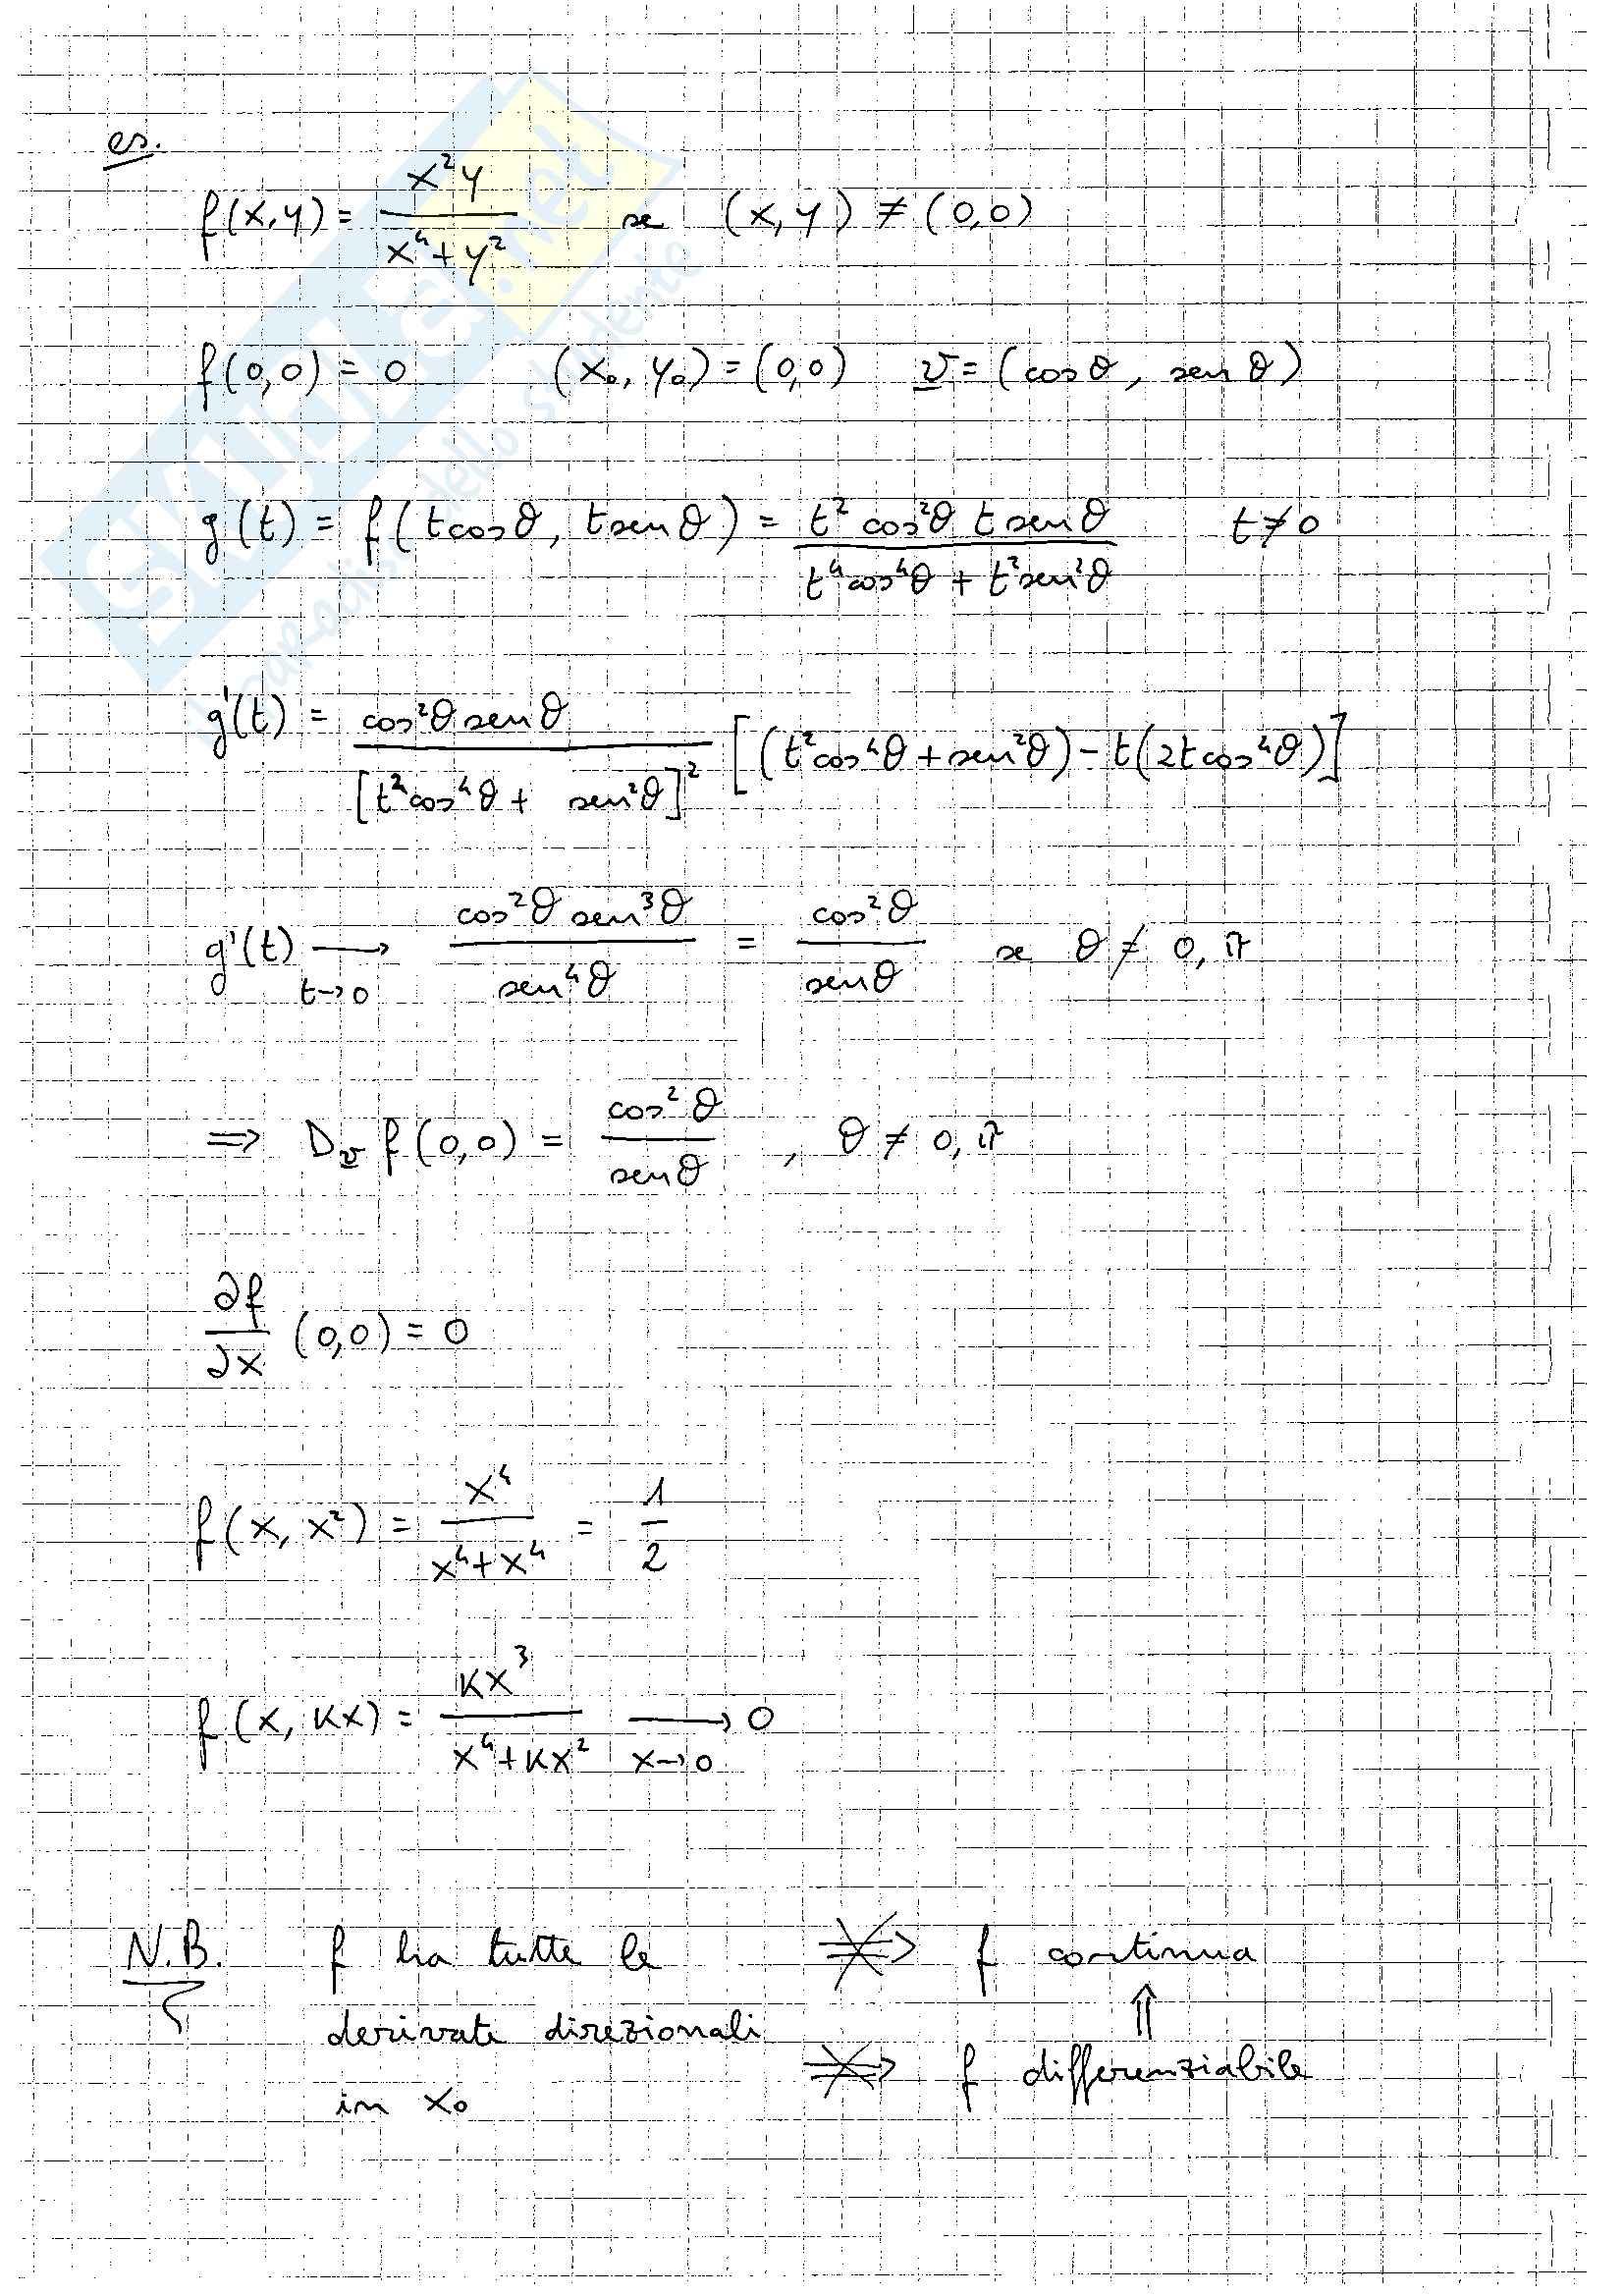 es.
f(x,y) = x²y / (x⁴+y²) se (x,y) ≠ (0,0)
f(0,0) = 0 (x₀,y₀) = (0,0) v = (cosθ, senθ)
g(t) = f(tcosθ, tsenθ) = t²cos²θ tsenθ / (t⁴cos⁴θ + t²sen²θ) t≠0
g'(t) = cos²θ senθ / [t²cos⁴θ + sen²θ]² [(t²cos⁴θ + sen²θ) - t(2tcos⁴θ)]
g'(t) → t→0 cos²θ sen³θ / sen⁴θ = cos²θ / senθ se θ ≠ 0, π
⇒ D_v f(0,0) = cos²θ / senθ , θ ≠ 0, π
∂f/∂x (0,0) = 0
f(x, x²) = x⁴ / (x⁴+x⁴) = 1/2
f(x, kx) = kx³ / (x⁴+kx²) → x→0 0
N.B. f ha tutte le ⇏ f continua
derivate direzionali ⇑
in x₀ ⇏ f differenziabile